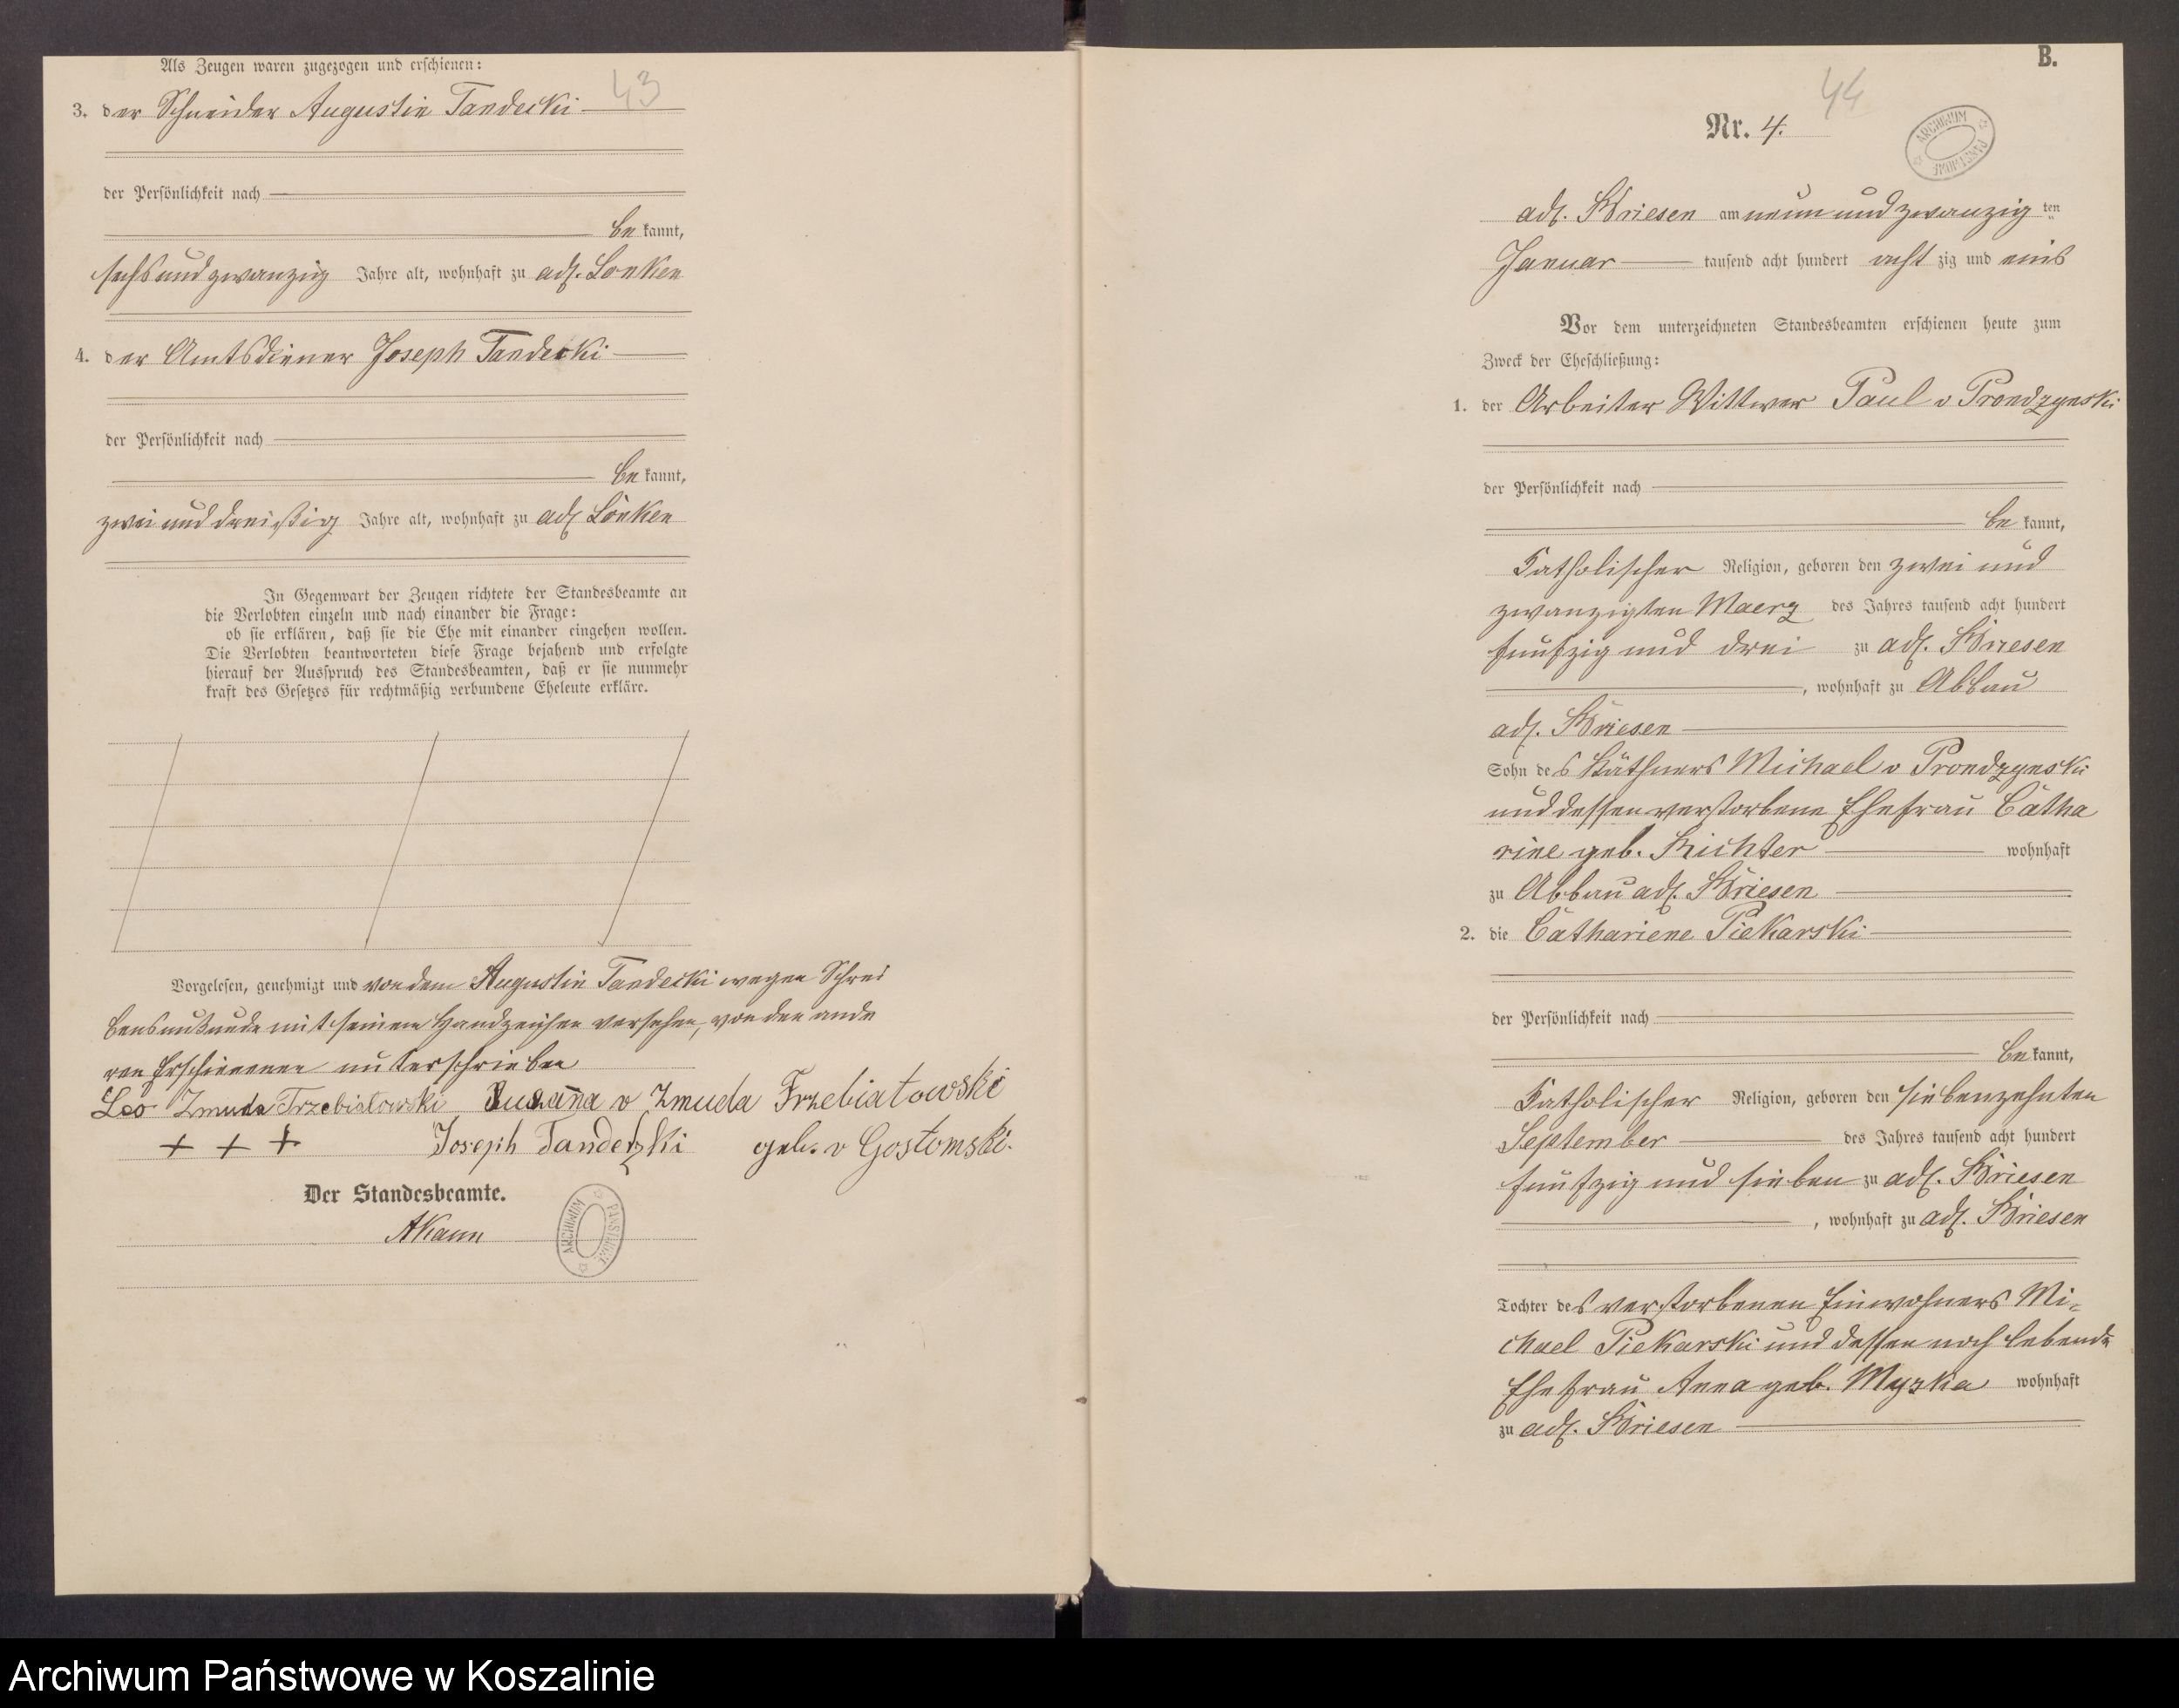 Als Zeugen waren zugezogen und erschienen:
43
3. der Schneider Augustin Tandecki
der Persönlichkeit nach
be kannt,
sechsundzwanzig Jahre alt, wohnhaft zu adl. Lonken
4. der Amtsdiener Joseph Tandecki
der Persönlichkeit nach
be kannt,
zwei und dreißig Jahre alt, wohnhaft zu adl Lonken
In Gegenwart der Zeugen richtete der Standesbeamte an
die Verlobten einzeln und nach einander die Frage:
ob sie erklären, daß sie die Ehe mit einander eingehen wollen.
Die Verlobten beantworteten diese Frage bejahend und erfolgte
hierauf der Ausspruch des Standesbeamten, daß er sie nunmehr
kraft des Gesetzes für rechtmäßig verbundene Eheleute erkläre.
Vorgelesen, genehmigt und von dem Augustin Tandecki wegen Schrei
bensunkunde mit seinem Handzeichen versehen, von den ande
ren Erschienenen unterschrieben
Leo Zmuda Trzebiatowski Susana v Zmuda Trzebiatowski
+ + + Joseph Tandetzki geb. v Gostomski.
Der Standesbeamte.
AKann
ARCHIWUM PAŃSTWOWE
B.
44
Nr. 4.
ARCHIWUM PAŃSTWOWE
adl. Briesen am neun und zwanzig ten
Januar tausend acht hundert acht zig und eins
Vor dem unterzeichneten Standesbeamten erschienen heute zum
Zweck der Eheschließung:
1. der Arbeiter Wittwer Paul v Prondzynski
der Persönlichkeit nach
be kannt,
Katholischer Religion, geboren den zwei und
zwanzigsten Maerz des Jahres tausend acht hundert
funfzig und drei zu adl. Briesen
, wohnhaft zu Abbau
adl. Briesen
Sohn des Käthners Michael v Prondzynski
und dessen verstorbene Ehefrau Catha
rine geb. Richter wohnhaft
zu Abbau adl. Briesen
2. die Cathariene Piekarski
der Persönlichkeit nach
be kannt,
Katholischer Religion, geboren den siebenzehnten
September des Jahres tausend acht hundert
funfzig und sieben zu adl. Briesen
, wohnhaft zu adl. Briesen
Tochter des verstorbenen Einwohners Mi-
chael Piekarski und dessen noch lebende
Ehefrau Anna geb. Myzka wohnhaft
zu adl. Briesen
Archiwum Państwowe w Koszalinie